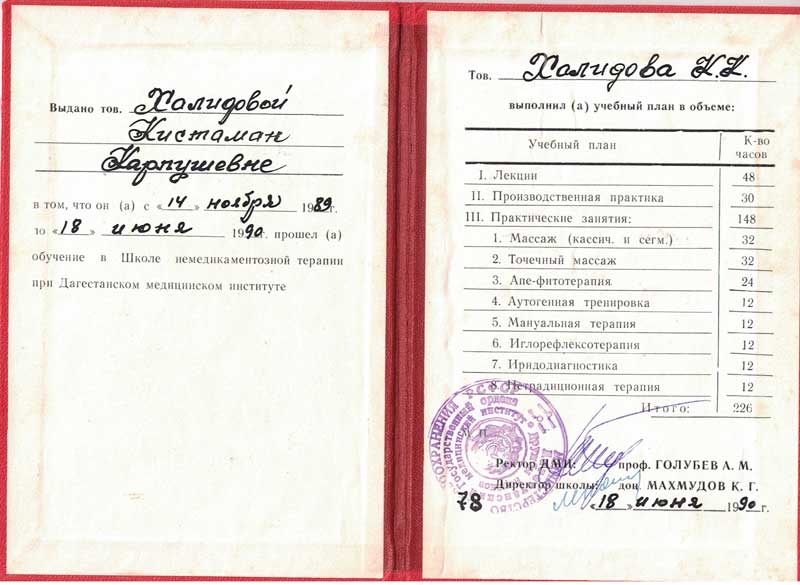 Выдано тов. Халидовой
Кистаман
Карпушевне
в том, что он (а) с «14» ноября 1989г.
по «18» июня 1990г. прошел (а)
обучение в Школе немедикаментозной терапии
при Дагестанском медицинском институте
Тов. Халидова К.К.
выполнил (а) учебный план в объеме:
Учебный план К-во часов
I. Лекции 48
II. Производственная практика 30
III. Практические занятия: 148
1. Массаж (кассич. и сегм.) 32
2. Точечный массаж 32
3. Апе-фитотерапия 24
4. Аутогенная тренировка 12
5. Мануальная терапия 12
6. Иглорефлексотерапия 12
7. Иридодиагностика 12
8. Нетрадиционная терапия 12
Итого: 226
М. П.
Ректор ДМИ: проф. ГОЛУБЕВ А. М.
Директор школы: доц. МАХМУДОВ К. Г.
78 «18» июня 1990г.